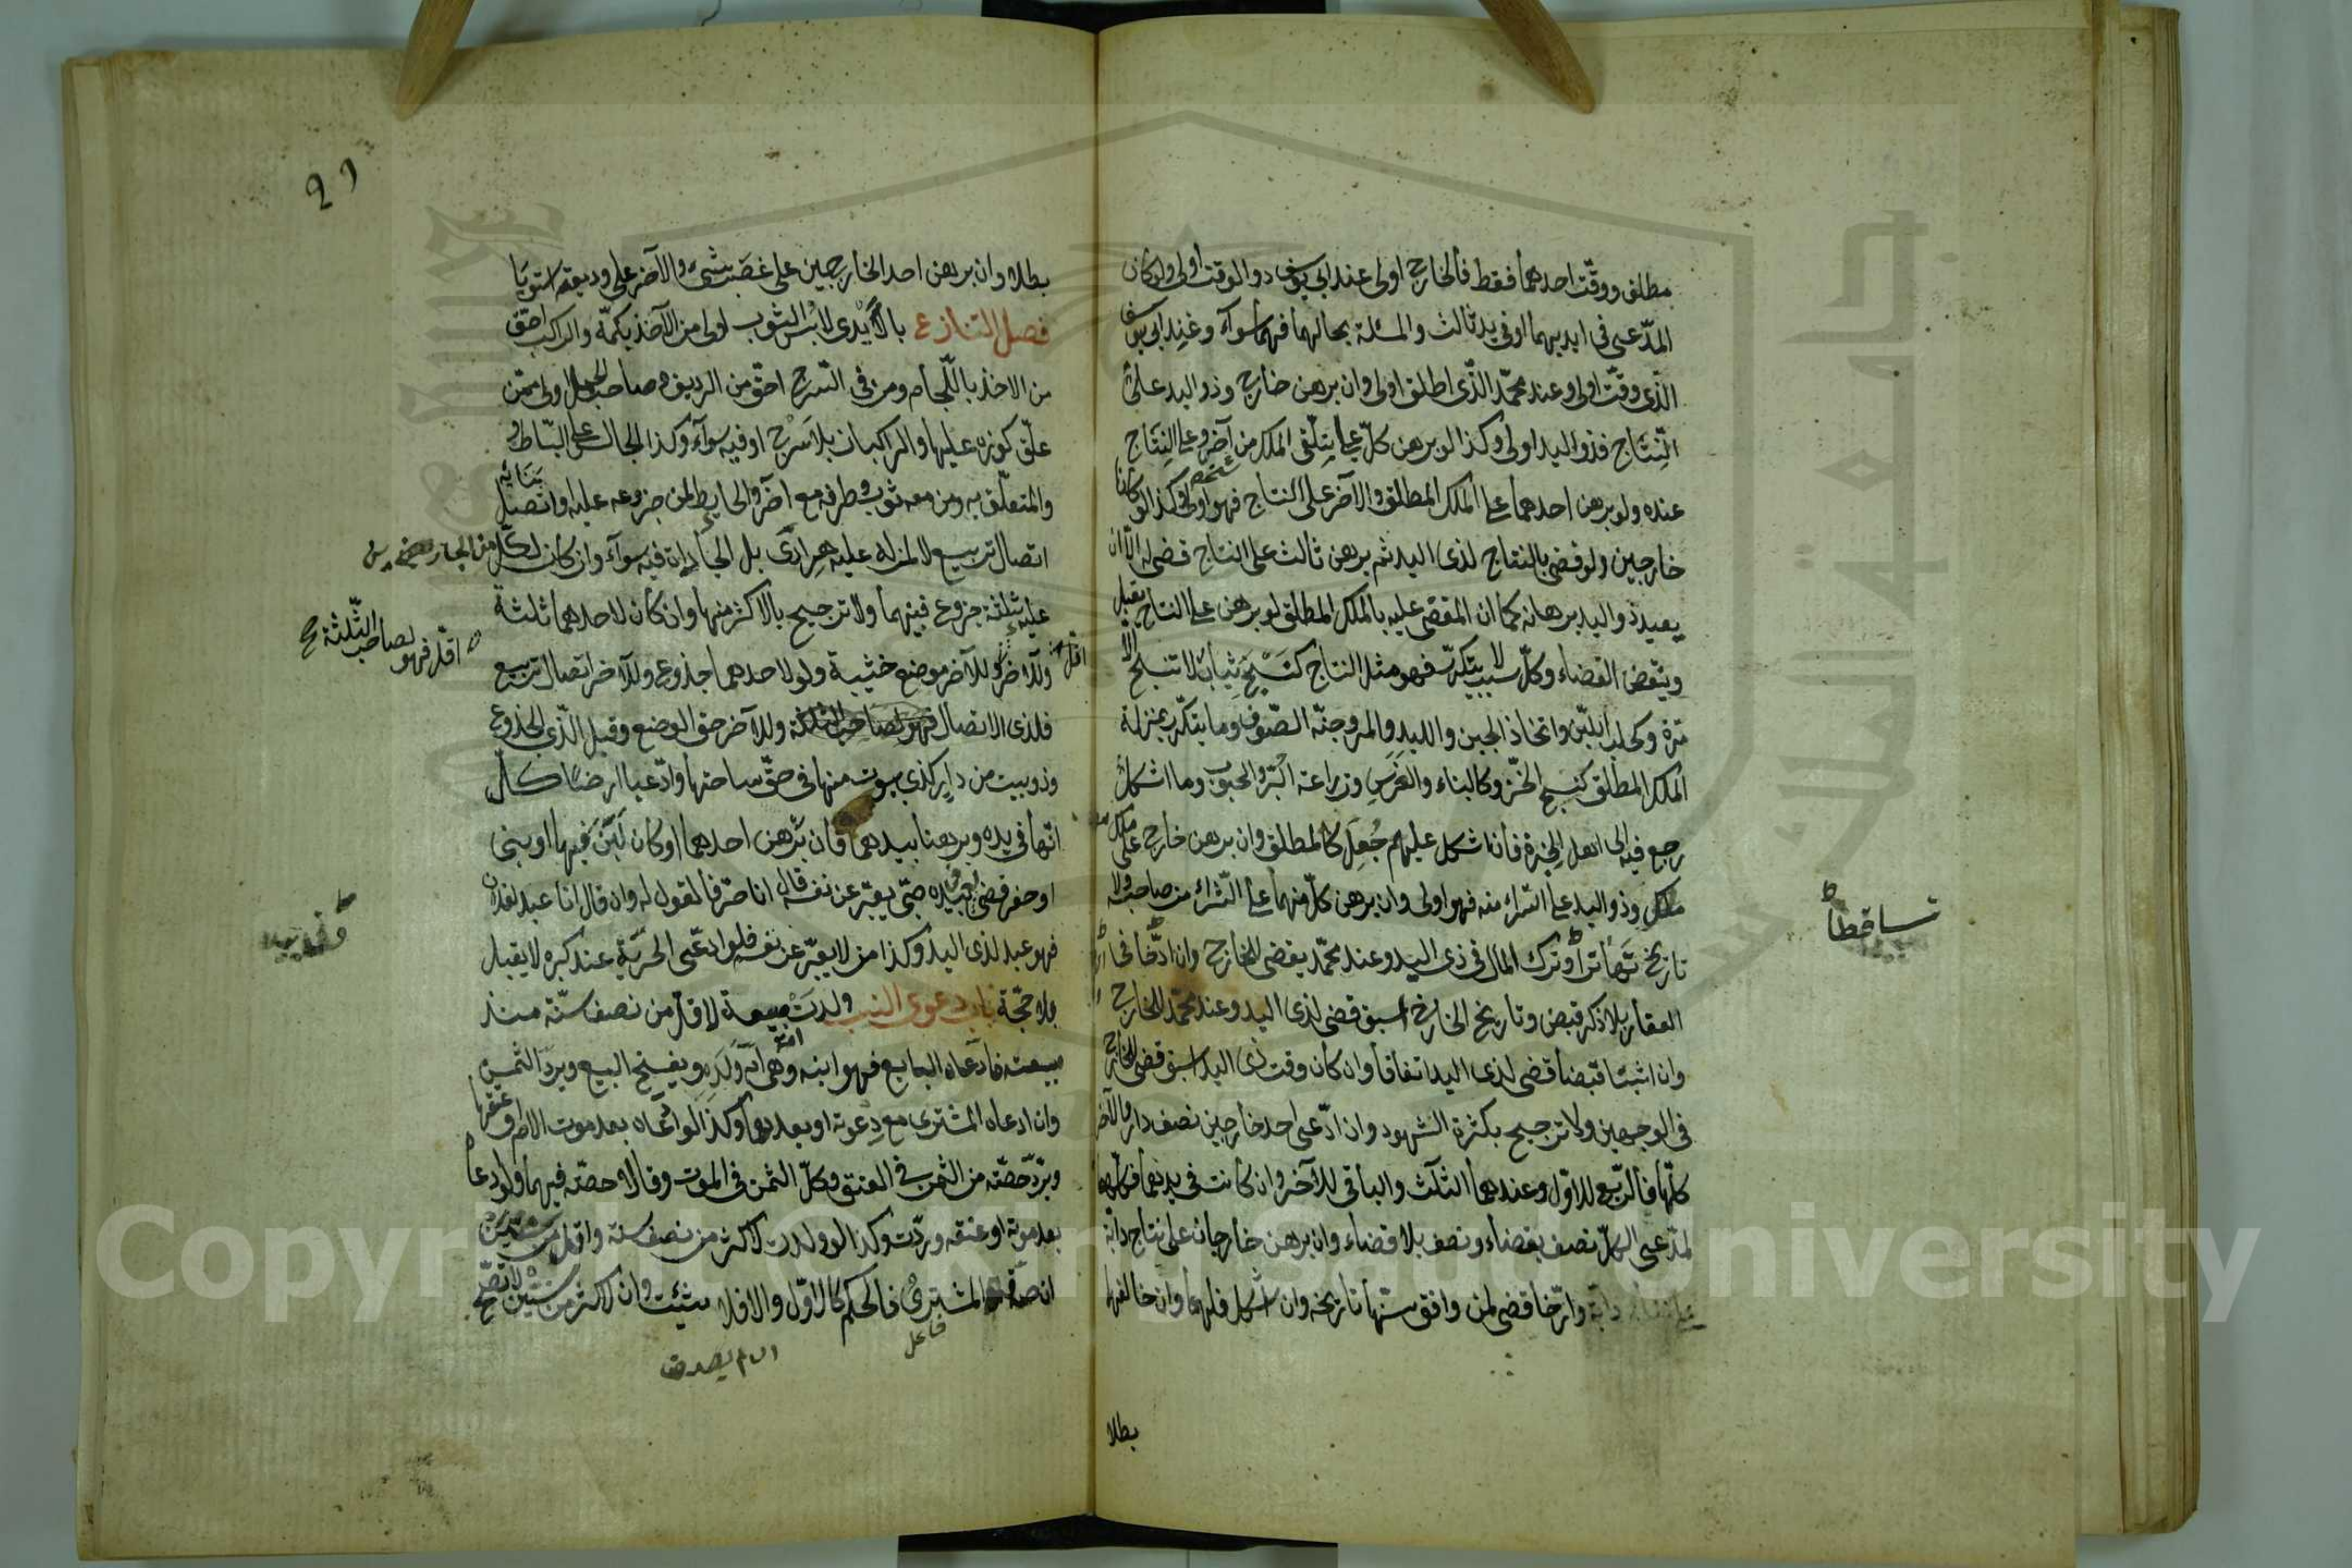 مطلق ووقّت احدهما فقط فالخارج اولى عند ابي يوسف ذو الوقت اولى ولو كان
المدّعى في ايديهما او في يد ثالث والمسئلة بحالها فهما سواء وعند ابي يوسف
الّذي وقّت اولى وعند محمّد الّذي اطلق اولى وان برهن خارج وذو اليد على
النِّتاج فذو اليد اولى وكذا لو برهن كلّ على تلقّى الملك من آخر وعلى النِتَاج
عنده ولو برهن احدهما على الملك المطلق والآخر على النتاج فهو اولى وكذا لو كانا
خارجين ولو قضى بالنتاج لذى اليد ثم برهن ثالث على النتاج قضى له الّا ان
يعيد ذو اليد برهانه كما ان المقضى عليه بالملك المطلق لو برهن على النتاج يقبل
وينقض القضاء وكلّ سبب لا يتكرّر فهو مثل النتاج كنَسْجِ ثيابٍ لا تنسج الّا
مرّة وكحلب اللبن واتخاذ الجبن واللبد والمرعزى وجزّ الصّوف وما يتكرّر بمنزلة
الملك المطلق كنسج الخزّ وكالبناء والغَرسِ وزراعة البُرّ والحبوب وما اشكل
رجع فيه الى اهل الخبرة فان اشكل عليهم جُعِلَ كالمطلق وان برهن خارج على
ملك وذو اليد على الشراء منه فهو اولى وان برهن كلّ منهما على الشّراء من صاحبه ولا
تاريخ تهاترا وترك المال في ذى اليد وعند محمّد يقضى للخارج وان ارّخا في
العقار بلا ذكر قبض وتاريخ الخارج اسبق قضى لذى اليد وعند محمّد للخارج
وان اثبتا قبضا قضى لذى اليد اتفاقا وان كان وقت ذى اليد اسبق قضى للخارج
في الوجهين ولا ترجيح بكثرة الشهود وان ادّعى احد خارجين نصف دار والآخر
كلّها فالرّبع للاوّل وعندهما الثلث والباقي للآخر وان كانت في يدهما فكلّها
لمدّعى الكلّ نصف بقضاء ونصف بلا قضاء وان برهن خارجان على نتاج دابّة
وارّخا قضى لمن وافق سنّها تاريخه وان اشكل فلهما وان خالفهما
تساقطا
بطلا
بطلا وان برهن احد الخارجين على غصب شىء والآخر على وديعته استويا
فصل التنازع بالأَيْدى لابس الثوب اولى من الآخذ بكمّه والراكب احقّ
من الاخذ باللّجام ومن في السّرج احقّ من الرديف وصاحب الحمل اولى ممّن
علّق كوزه عليها والراكبان بلا سَرْج او فيه سواء وكذا الجالس على البساط
والمتعلّق به ومن معه ثوب وطرفه مع آخر والحايط لمن جزوعه عليه او اتّصل ببنائه
اتصال تربيع لا لمن له عليه هرادى بل الجاران فيه سواء وان كان لكلّ من الجارين
عليه ثلثة جزوع فبينهما ولا ترجيح بالاكثر منها وان كان لاحدهما ثلثة
وللآخر اقل فهو لصاحب الثّلثة صح
وللآخر موضع خشبة ولو لاحدهما جذوع وللآخر اتصال تربيع
فلذى الاتصال وللآخر حق الوضع وقيل الّذى الجذوع
وذو بيت من دار كذى بيوت منها في حقّ ساحتها وادّعيا ارضا كلّ
انّها في يده وبرهنا بيدهما فان برهن احدهما او كان لَبَّن فيها او بنى
او حفر قضى بيده صبىّ يعبّر عن نفسه قال انا حرّ فالقول له وان قال انا عبد لفلان
فهو عبد لذى اليد وكذا من لا يعبّر عن نفسه فلو ادعّى الحرّية عند كبره لا يقبل
بلا حجّة باب دعوى النسب ولدت مبيعة لاقلّ من نصف سنّة منذ
بيعت فادّعاه البايع فهو ابنه وهى امّ ولَده ويفسخ البيع ويردّ الثمن
وان ادعاه المشترى مع دِعوته او بعدها وكذا لو ادّعاه بعد موت الام او عتقها
ويردّ حصّته من الثمن في العتق وكلّ الثمن في الموت وقالا حصّته فيهما ولو ادعاه
بعد موته او عتقه ردّت وكذا لو ولدت لاكثر من نصف سنة واقل من سنتين
ان صدّقه المشترى فالحكم كالاوّل والا فلا يثبت وان لاكثر من سنتين لا تصحّ
فاعل
ان لم يصدق
Copyright © King Saud University